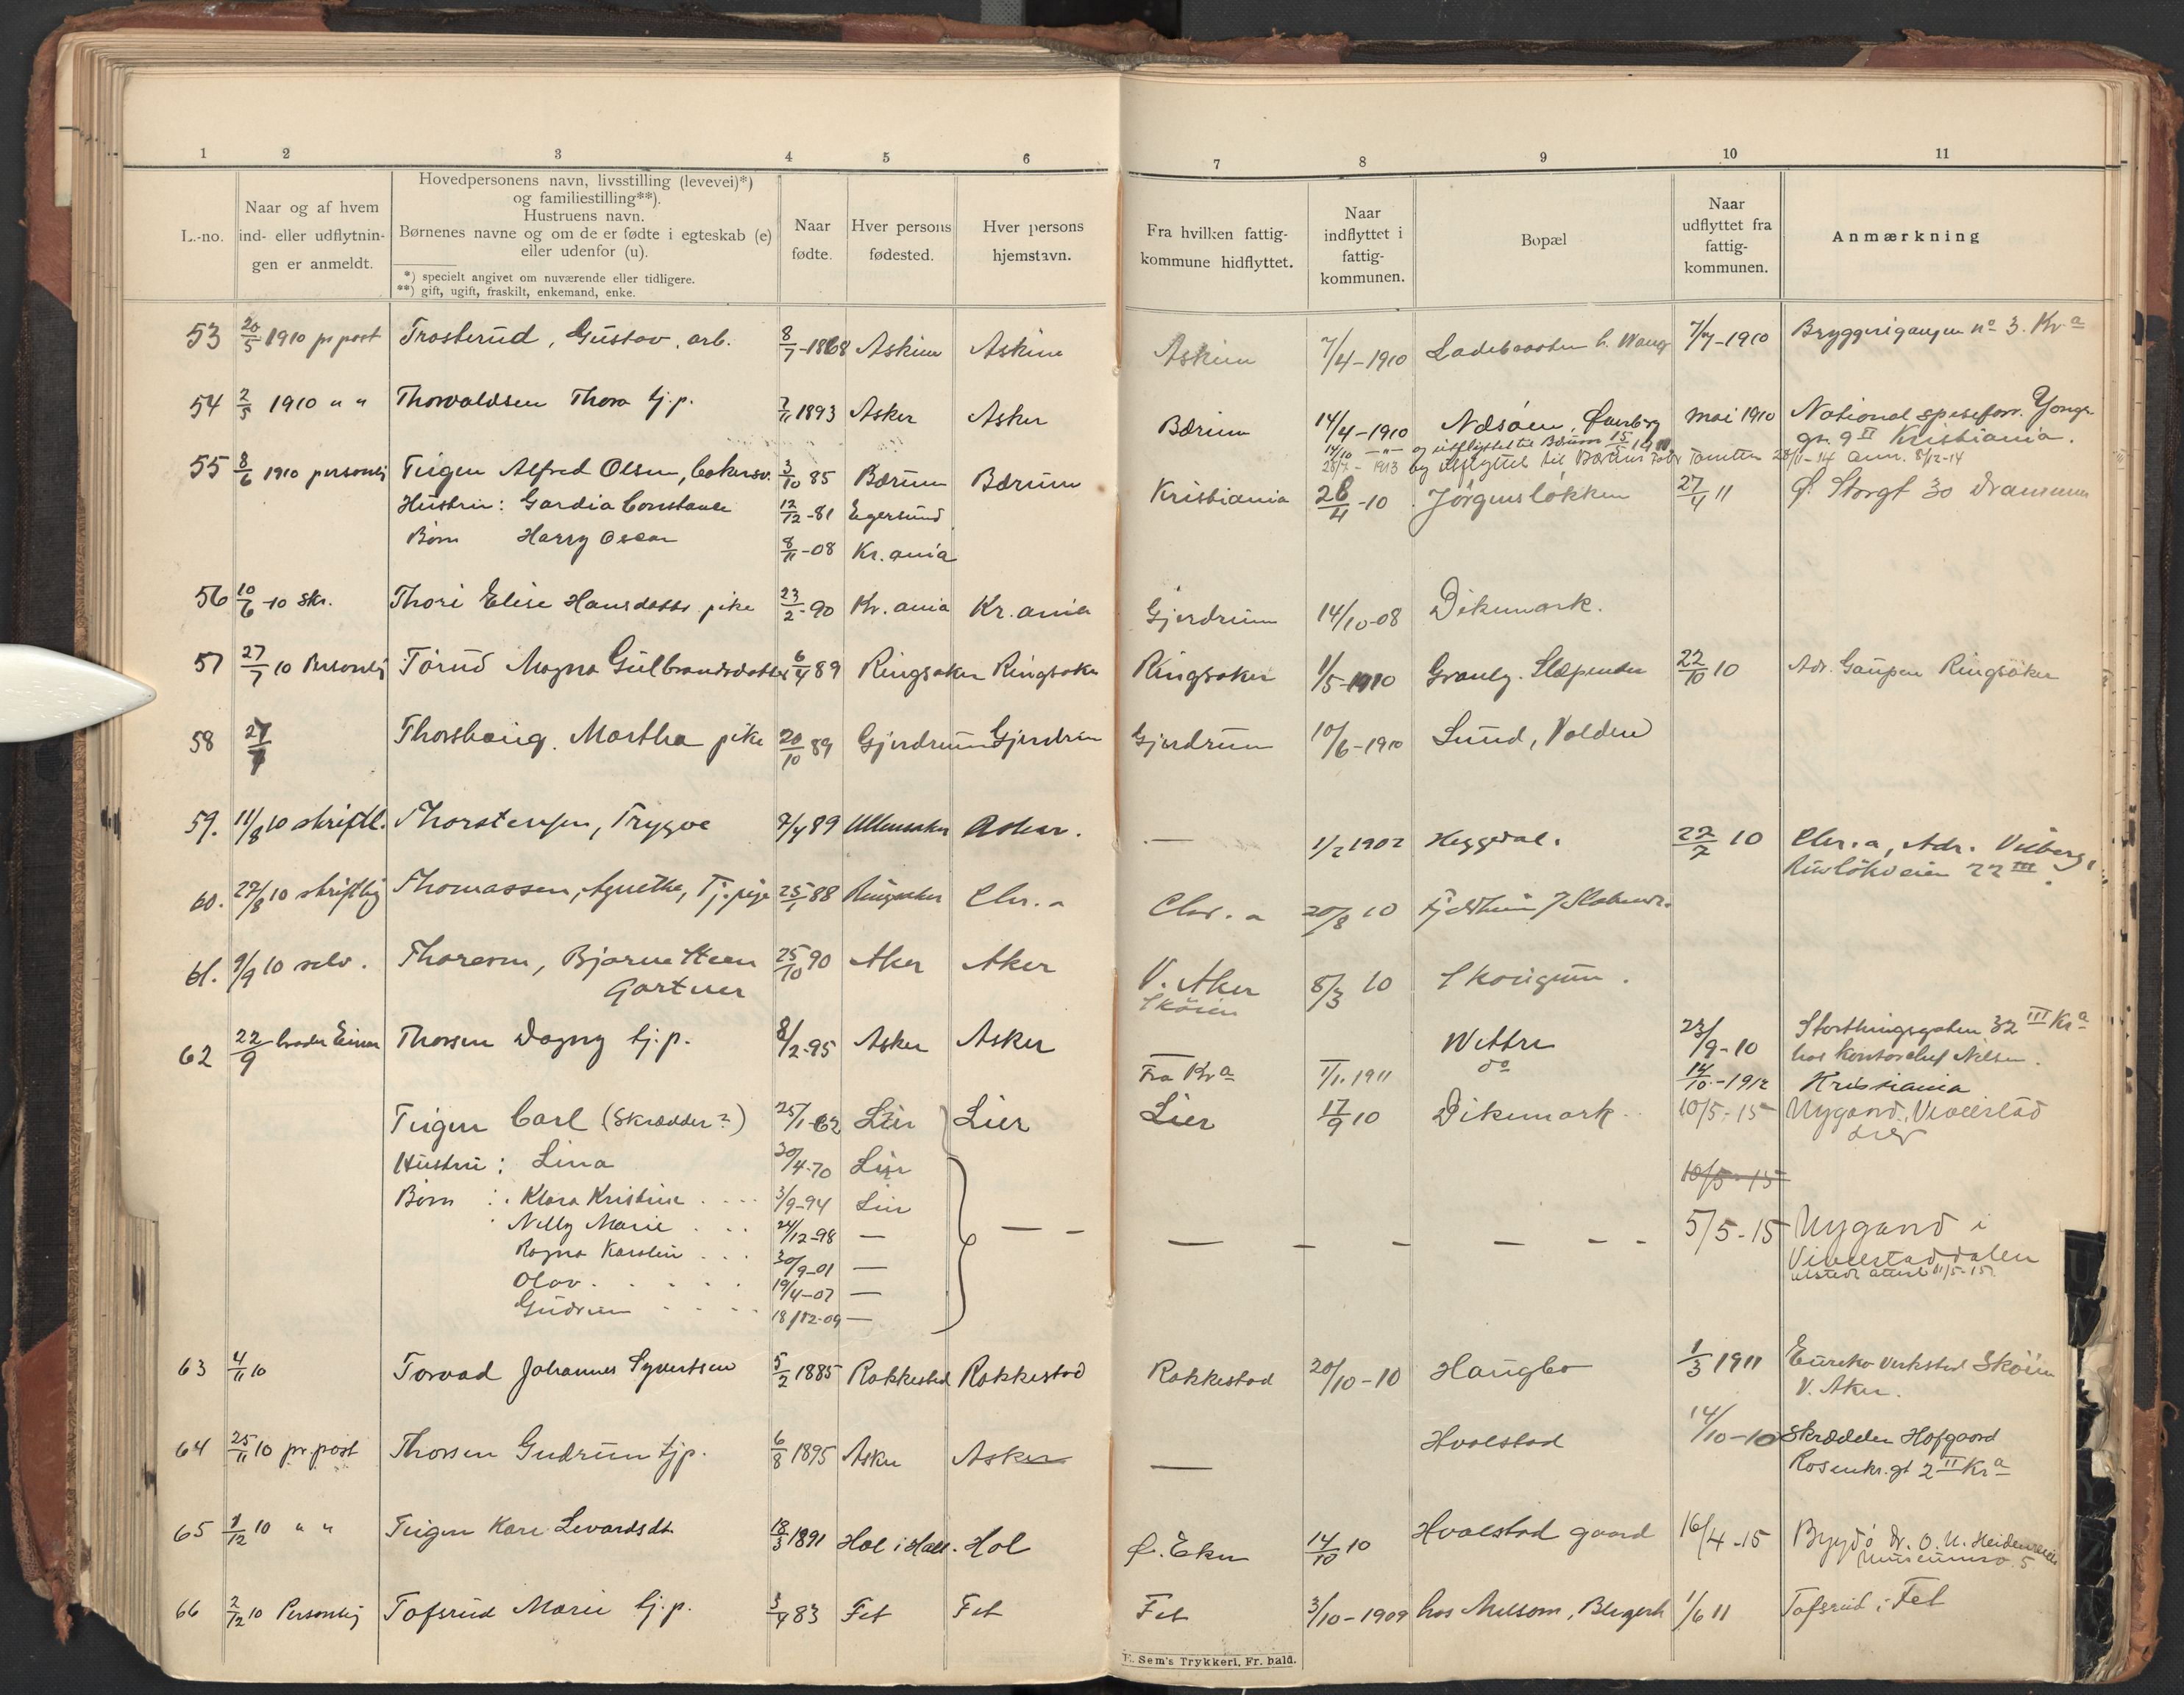 1 2 3 4 5 6 7 8 9 10 11
L.-no.
Naar og af hvem
ind- eller udflytnin-
gen er anmeldt.
Hovedpersonens navn, livsstilling (levevei)*)
og familiestilling**).
Hustruens navn.
Børnenes navne og om de er fødte i egteskab (e)
eller udenfor (u).
*) specielt angivet om nuværende eller tidligere.
**) gift, ugift, fraskilt, enkemand, enke.
Naar
fødte.
Hver persons
fødested.
Hver persons
hjemstavn.
Fra hvilken fattig-
kommune hidflyttet.
Naar
indflyttet i
fattig-
kommunen.
Bopæl
Naar
udflyttet fra
fattig-
kommunen.
Anmærkning
53 20/5 1910 pr post Trosterud, Gustav, arb. 8/7-1868 Askim Askim Askim 7/4-1910 7/7-1910 Bryggerigangen no 3. Kr.a
54 2/5 1910 " " Thorvaldsen Thora tj.p. 1893 Asker Asker Bærum 14/4-1910 Næsøen, mai 1910 National speseforr. Yongs-
gt. 9 II Kristiania.
14/10 -"- og utflyttet til Bærum 15/
28/7 - 1913 og utflyttet til Bærums 14 anm. 8/12-14
55 8/6 1910 personlig Teigen Alfred Olsen, 3/10 85 Bærum Bærum Kristiania 26/4-10 Jørgensløkken 27/4 11 Ø. Storgt 30 Drammen
Hustru: Gardia Constance 12/12-81 Egersund
Børn Harry Oscar 8/11-08 Kr.ania
56 10/6-10 Skr. Thori Elise Hansdatter pike 23/2-90 Kr.ania Kr.ania Gjerdrum 14/10-08 Dikemark.
57 27/7 10 Personlig Tørud Magna Gulbrandsdatter 6/4 89 Ringsaker Ringsaker Ringsaker 1/5-1910 Granly. Slæpenden 22/10 10 Adr. Gaupen Ringsaker
58 27/7 Thorshaug. Martha pike 20/10 89 Gjerdrum Gjerdrum Gjerdrum 10/6-1910 Lund, Valden
59. 11/8 10 skriftl. Thorstensen, Trygve 7/4 89 Ullensaker Asker. — 1/2 1902 Heggedal. 22/7 10 Chr.a, Adr. Viberg,
Ruseløkveien 22 III.
60. 22/8 10 skriftlig Thomassen, Agnethe, Tj.pige 25/1 88 Ringsaker Chr.a Chr.a 20/8 10
61. 9/9 10 selv. Thoresen, Bjarne Steen 25/10 90 Aker Aker V. Aker 8/3 10 Skougum.
Gartner Skøien
62 22/9 broder Einar Thorsen Dagny tj.p. 8/2-95 Asker Asker — Wettre 23/9-10 Storthingsgaten 32 III Kr.a
hos Kontorchef Nilsen.
Fra Kr.a 1/1.1911 do 14/10-1912 Kristiania
Teigen Carl (Skrædder?) 25/1-62 Lier Lier Lier 17/9 10 Dikemark 10/5-15 Nygaard, Viveelstad
Lier
Hustru: Lina 30/4-70 Lier 10/5-15
Børn: Klara Kristine 3/9-94 Lier
Nelly Marie 24/12-98 — — — — — — 5/5-15 Nygaard i
Ragna Karoline 30/9-01 — Vivelstaddalen
Olav 19/4-07 — utstedt attest 11/5-15
Gudrun 18/12-09 —
63 4/11 10 Torvad Johannes Syvertsen 5/2 1885 Rakkestad Rakkestad Rakkestad 20/10-10 Haugbo 1/3 1911 Eureka Verksted Skøien
V. Aker.
64 25/11 10 pr. post Thorsen Gudrun tjp. 6/8 1895 Asker Asker — Hvalstad 14/10-10 Skrædder Hofgaard
Rosenkr.gt 2 II Kr.a
65 1/12 10 " " Teigen Kari Levardsdt. 18/3 1891 Hol i Hall. Hol Ø. Eker 14/10 10 Hvalstad gaard 16/4-15 Bygdø Dr. O. N. Heidenreich
Museumsv. 5
66 2/12 10 Personlig Tofsrud Marie tj.p. 3/4 83 Fet Fet Fet 3/10-1909 hos Nelsom, 1/6 11 Tofsrud i Fet
E. Sem's Trykkeri, Fr. hald.